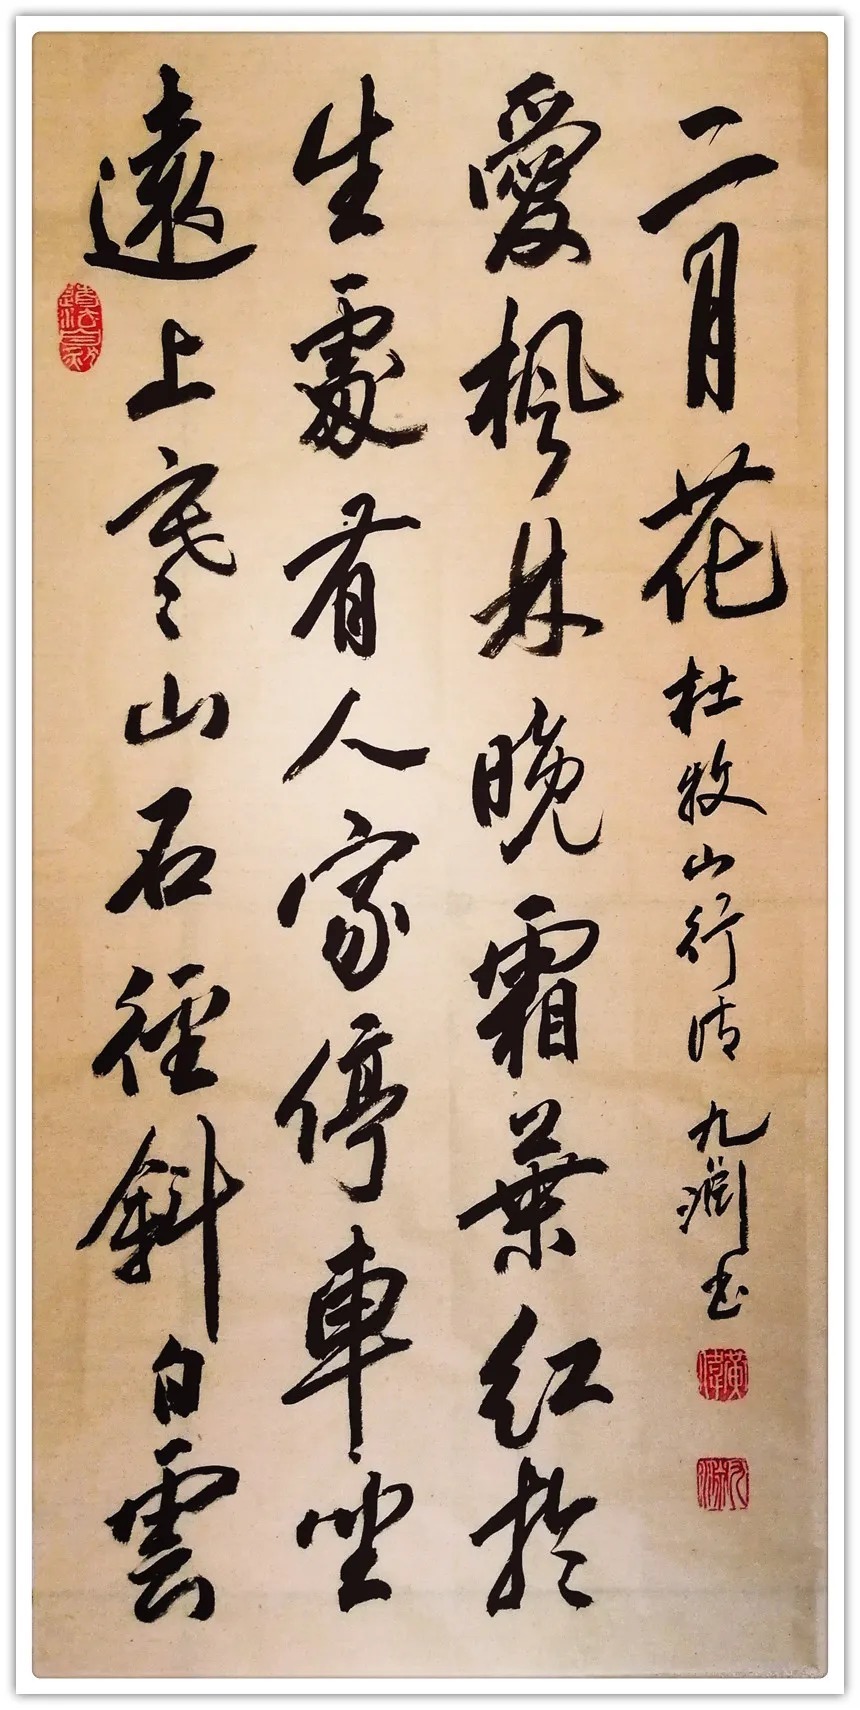 遠上寒山石徑斜白雲
生處有人家停車坐
愛楓林晚霜葉紅於
二月花
杜牧山行詩 九淵书
道法自然